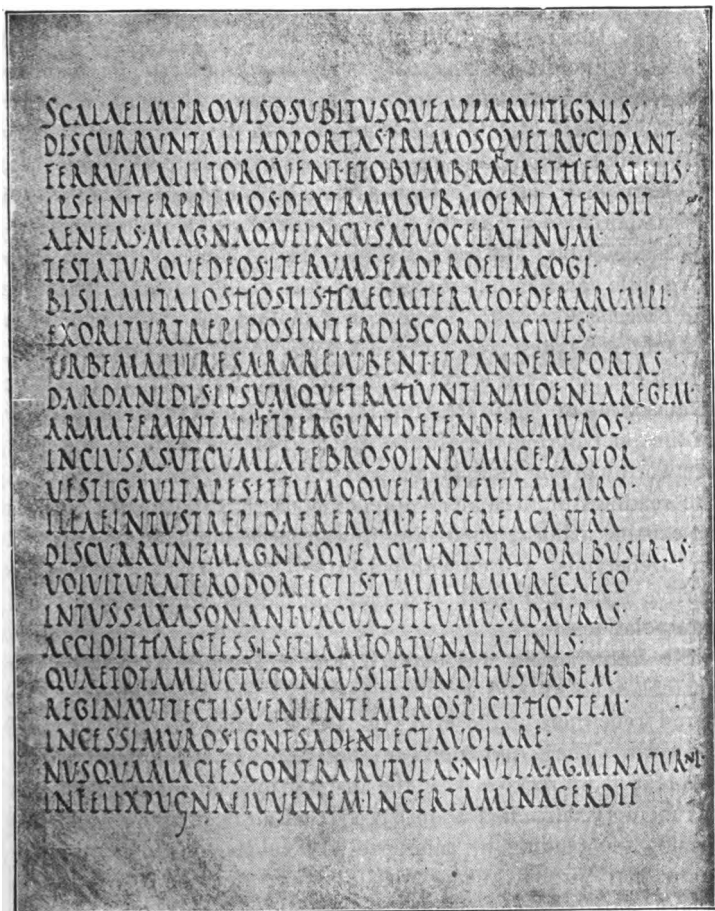 SCALAEIMPROVISOSUBITUSQUEAPPARUITIGNIS·
DISCURRUNTALIIADPORTAS·PRIMOSQUETRUCIDANT
FERRUMALIITORQUENT·ETOBUMBRANTAETHERATELIS·
IPSEINTERPRIMOS·DEXTRAMSUBMOENIATENDIT
AENEAS·MAGNAQUEINCUSATUOCELATINUM·
TESTATURQUEDEOSITERUMSEADPROELIACOGI·
BISIAMITALOSHOSTISHAECALTERAFOEDERARUMPI·
EXORITURTREPIDOSINTERDISCORDIACIUES·
URBEMALIIRESARAREIUBENT·ETPANDEREPORTAS
DARDANIDIS·IPSUMQUETRAHUNTINMOENIAREGEM·
ARMAFERUNTALIIETPERGUNTDEFENDEREMUROS·
INCLUSAS·UTCUMLATEBROSOINPUMICEPASTOR
UESTIGAUITAPES·ETFUMOQUEIMPLEUITAMARO·
ILLAEINTUSTREPIDAERERUM·PERCEREACASTRA
DISCURRUNT·MAGNISQUEACUUNTSTRIDORIBUSIRAS·
UOLUITURATERODORTECTIS·TUMMURMURECAECO
INTUSSAXASONANTUACUASITFUMUSADAURAS·
ACCIDITHAECFESSISETIAMFORTUNALATINIS·
QUAETOTAMLUCTUCONCUSSITFUNDITUSURBEM·
REGINAUTTECTISUENIENTEMPROSPICITHOSTEM·
INCESSIMUROS·IGNISADINTECTAUOLARE·
NUSQUAMACIESCONTRARUTULAS·NULLAAGMINATURNI·
INFELIXPUGNAEIUUENEM·INCERTAMINACERDIT